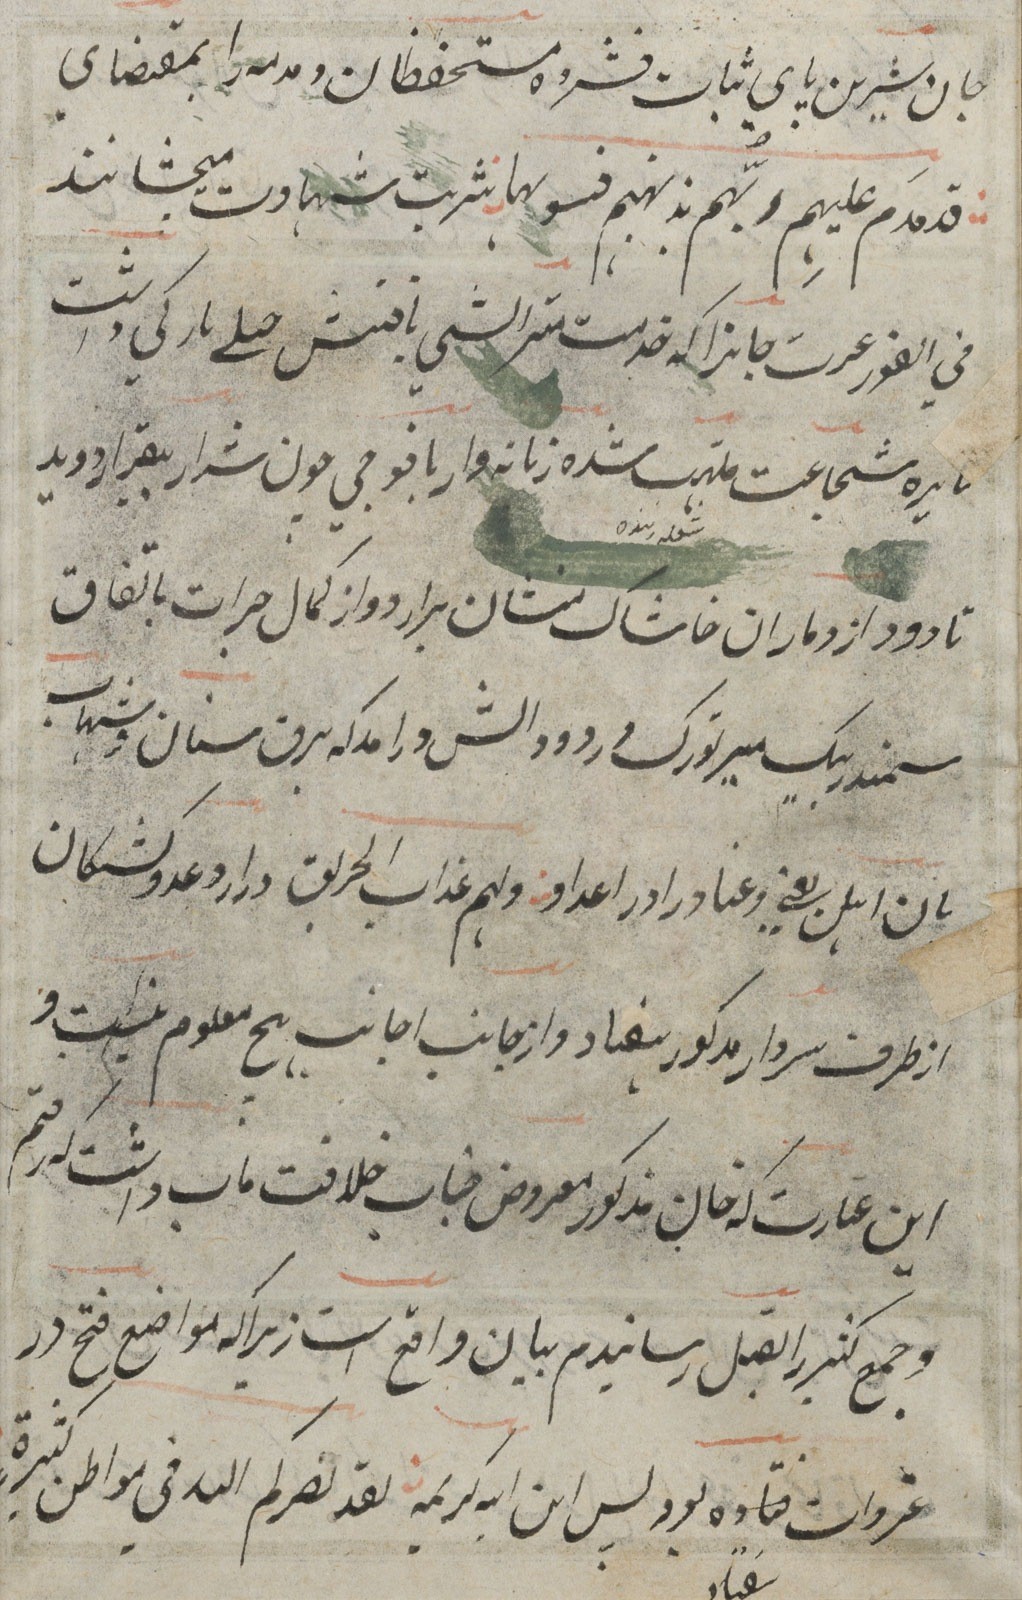 جان شیرین پای ثبات فشرده مستحفظان و مدمه را بمقتضای
قدمدم علیهم ربهم بذنبهم فسوىها شربت شهادت میچشانند
فی الفور عرب جانرا که خدمت میر الشی یافتش خیلے بارکی داشت
نایره شجاعت ملتهب شده زبانه وار با فوجی چون شرار بیقرار دوید
شعله زننده
تا دود از دماران خاشاک منشان برارد و از کمال جرات باتفاق
سمندر بیک میر تورک و ردود الش درامد که برق سنان و شهاب
بان اهل بغی و عناد را در اعداد ولهم عذاب الحریق درارد عدد کشتکان
از طرف سردار مذکور هفتاد و از جانب اجانب هیچ معلوم نیست و
این عبارت که خان مذکور معروض جناب خلافت ماب داشت که رفتم
و جمع کثیر را بقتل رسانیدم بیان واقع است زیرا که مواضع فتح در
غزوات هفتاد بود و لیس این ایه کریمه لقد نصرکم الله فی مواطن کثیرة
هفتاد